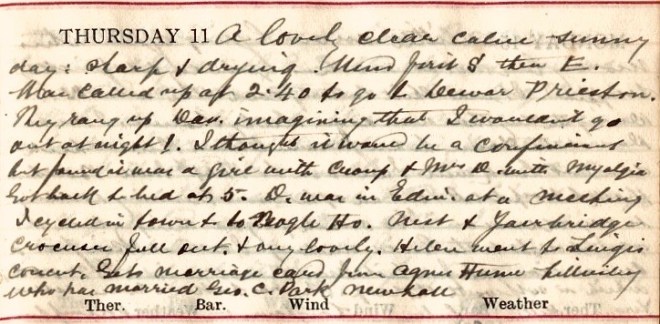 THURSDAY 11 A lovely clear calm sunny
day: sharp & drying. Wind first S then E.
Was called up at 2.40 to go to Dewar Prieston.
They rang up Dav. imagining that I wouldn't go
out at night! I thought it would be a confinement
but found it was a girl with croup & Mrs D. with myalgia
Got back to bed at 5. D. was in Edin. at a meeting
I cycled in town & to Ho. West & Fairbridge
Crocuses full out. & very lovely. Helen went to
concert. Gets marriage card from Agnes Hume
who has married Geo. C. Park Newhall
Ther. Bar. Wind Weather